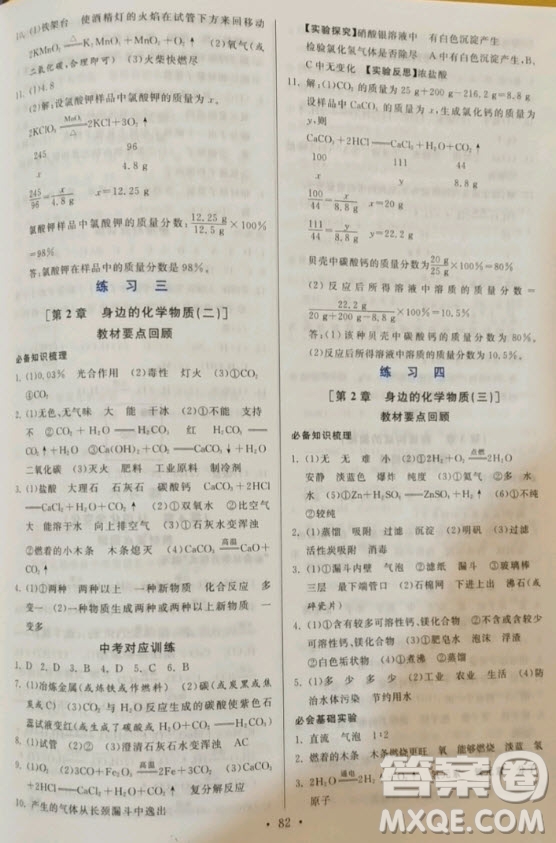 10. (1)铁架台 使酒精灯的火焰在试管下方来回移动
2KMnO₄ =△= K₂MnO₄+MnO₂+O₂↑ (2)氧气(或
二氧化碳,合理即可) (3)火柴快燃尽
11. (1)4.8
(2)解:设氯酸钾样品中氯酸钾的质量为x。
2KClO₃ =MnO₂/△= 2KCl+3O₂↑
245 96
x 4.8 g
245/96=x/4.8 g x=12.25 g
氯酸钾样品中氯酸钾的质量分数:12.25 g/12.5 g×100%
=98%
答:氯酸钾在样品中的质量分数是98%。
练习三
[第2章 身边的化学物质(二)]
教材要点回顾
必备知识梳理
1. (1)0.03% 光合作用 (2)毒性 灯火 (3)①
2. (1)无色、无气味 大 能 干冰 (2)①不能 不支持
②CO₂+H₂O══H₂CO₃ 红 H₂CO₃══
CO₂↑+H₂O ③Ca(OH)₂+CO₂══CaCO₃↓+H₂O
二氧化碳 (3)灭火 肥料 工业原料 制冷剂
3. (1)盐酸 大理石 石灰石 碳酸钙 CaCO₃+2HCl══
CaCl₂+H₂O+CO₂↑ (2)①双氧水 ②比空气
大 能溶于水 向上排空气 (3)①石灰水变浑浊
②燃着的小木条 木条熄灭 (4)CaCO₃ =高温= CaO+
CO₂↑
4. (1)两种 两种以上 一种新物质 化合反应 多
变一 (2)一种物质生成两种或两种以上新物质 一
变多
中考对应训练
1. D 2. D 3. B 4. D 5. C 6. B
7. (1)冶炼金属(或炼铁或作燃料) (2)碳(或炭或焦
炭或C) (3)CO₂与H₂O反应生成的碳酸使紫色石
蕊试液变红(或生成了碳酸或CO₂+H₂O══H₂CO₃)
8. (1)试管 (2)②澄清石灰石水变浑浊 AC
9. (1)②3CO+Fe₂O₃ =高温= 2Fe+3CO₂ (2)CaCO₃
+2HCl══CaCl₂+H₂O+CO₂↑ 复分解反应
10. 产生的气体从长颈漏斗中逸出
【实验探究】硝酸银溶液中 有白色沉淀产生
检验氯化氢气体是否除尽 A中有白色沉淀产生,B、
C中无变化 【实验反思】浓盐酸
11. (1)解:CO₂的质量为25 g+200 g-216.2 g=8.8 g
设样品中CaCO₃的质量为x,生成氯化钙的质量为
y,则
CaCO₃+2HCl══CaCl₂+H₂O+CO₂↑
100 111 44
x y 8.8 g
100/44=x/8.8 g x=20 g
111/44=y/8.8 g y=22.2 g
贝壳中碳酸钙的质量分数20 g/25 g×100%=80%
(2)反应后所得溶液中溶质的质量分数为
22.2 g/20 g+200 g-8.8 g×100%≈10.5%
答:(1)该种贝壳中碳酸钙的质量分数为80%。
(2)反应后所得溶液中溶质的质量分数为10.5%。
练习四
[第2章 身边的化学物质(三)]
教材要点回顾
必备知识梳理
1. (1)无 无 难 小 (2)①2H₂+O₂ =点燃= 2H₂O
安静 淡蓝色 爆炸 纯度 (3)氢 ①Zn ②多 水
水 ⑤Zn+H₂SO₄══ZnSO₄+H₂↑ (6)①不纯
②较纯
2. (1)蒸馏 吸附 过滤 沉淀 (2)明矾 (3)过滤
(4)活性炭吸附 (5)蒸馏
3. (1)①漏斗内壁 气泡 ②滤纸 漏斗 ③玻璃棒
三层 最下端管口 (2)石棉网 下层进 沸石(或
碎瓷片)
4. (1)含有较多可溶性钙、镁化合物 ②不含或含较少
可溶性钙、镁化合物 (2)①肥皂水 泡沫 浮渣
②白色垢状物 (3)①煮沸 ②蒸馏
5. (1)①多 少 少 多 ②工业 农业 生活 (2)防
治水体污染 节约用水
必会基础实验
1. 直流 气泡 1:2
2. 燃着的木条 木条燃烧更旺 氧 能燃烧 淡蓝 氢
3. 2H₂O =通电= 2H₂
原子
82
答案圈
MXQE.COM